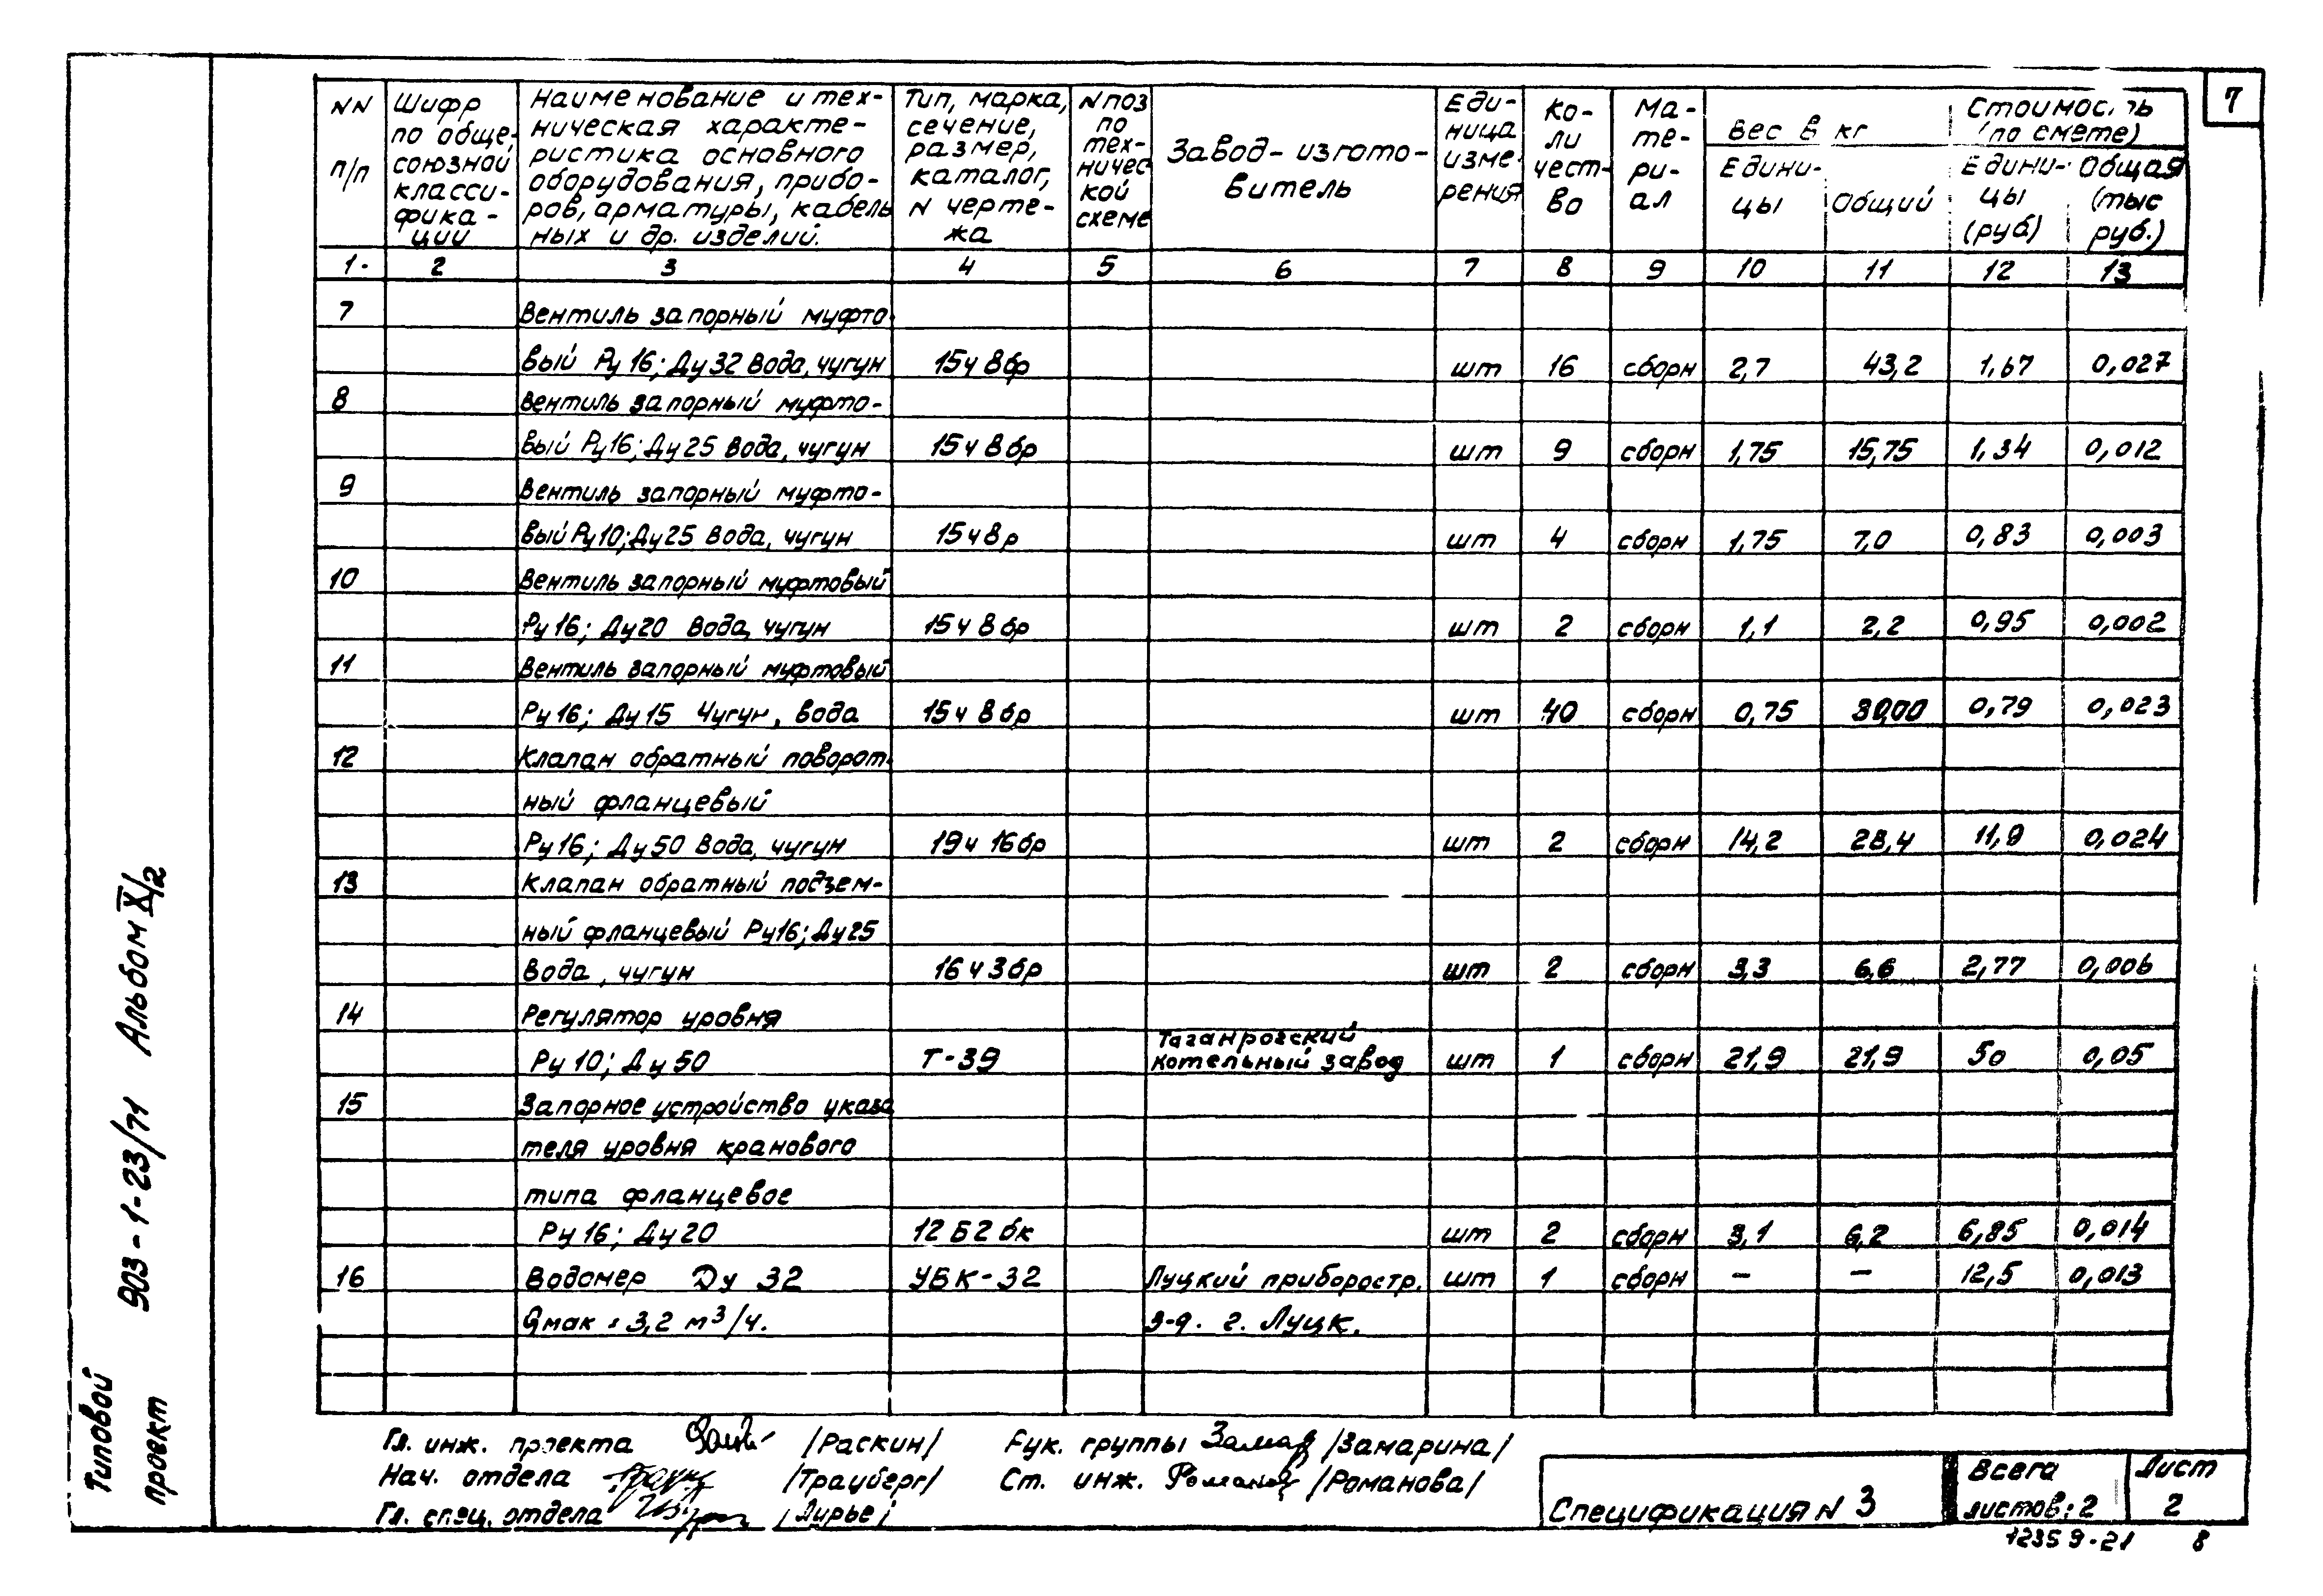 7
NN п/п
Шифр по обще, союзной класси- фика- ции
Наименование и тех- ническая характе- ристика основного оборудования, прибо- ров, арматуры, кабель ных и др. изделий.
Тип, марка, сечение, размер, каталог, N черте- жа
N поз по тех- ничес кой схеме
Завод-изгото- витель
Еди- ница изме рения
Ко- ли чест- во
Ма- те- ри- ал
Вес в кг
Едини- цы
Общий
Стоимость (по смете)
Едини- цы (руб)
Общая (тыс руб.)
1. 2 3 4 5 6 7 8 9 10 11 12 13
7 Вентиль запорный муфто
вый Ру 16; Ду 32 Вода, чугун 15ч 8бр шт 16 сборн 2,7 43,2 1,67 0,027
8 Вентиль запорный муфто-
вый Ру16; Ду 25 Вода, чугун 15ч 8бр шт 9 сборн 1,75 15,75 1,34 0,012
9 Вентиль запорный муфто-
вый Ру10; Ду25 Вода, чугун 15ч8р шт 4 сборн 1,75 7,0 0,83 0,003
10 Вентиль запорный муфтовый
Ру 16; Ду20 Вода, чугун 15ч 8бр шт 2 сборн 1,1 2,2 0,95 0,002
11 Вентиль запорный муфтовый
Ру 16; Ду 15 Чугун, вода 15ч 8бр шт 40 сборн 0,75 30,00 0,79 0,023
12 Клапан обратный поворот-
ный фланцевый
Ру 16; Ду 50 Вода, чугун 19ч 16бр шт 2 сборн 14,2 28,4 11,9 0,024
13 Клапан обратный подзем-
ный фланцевый Ру16; Ду25
Вода, чугун 16ч3бр шт 2 сборн 3,3 6,6 2,77 0,006
14 Регулятор уровня
Ру 10; Ду 50 Т-39 Таганрогский котельный завод шт 1 сборн 21,9 21,9 50 0,05
15 Запорное устройство указа
теля уровня кранового
типа фланцевое
Ру 16; Ду 20 12Б2бк шт 2 сборн 3,1 6,2 6,85 0,014
16 Водомер Ду 32 УВК-32 Луцкий приборостр. шт 1 сборн — — 12,5 0,013
Qмак = 3,2 м³/ч. з-д. г. Луцк.
Типовой проект 903-1-23/71 Альбом X/2
Гл. инж. проекта /Раскин/ Рук. группы /Замарина/
Нач. отдела /Трауберг/ Ст. инж. /Романова/
Гл. спец. отдела /Лурье/
Спецификация N 3
Всего листов: 2
Лист 2
12359-21 8